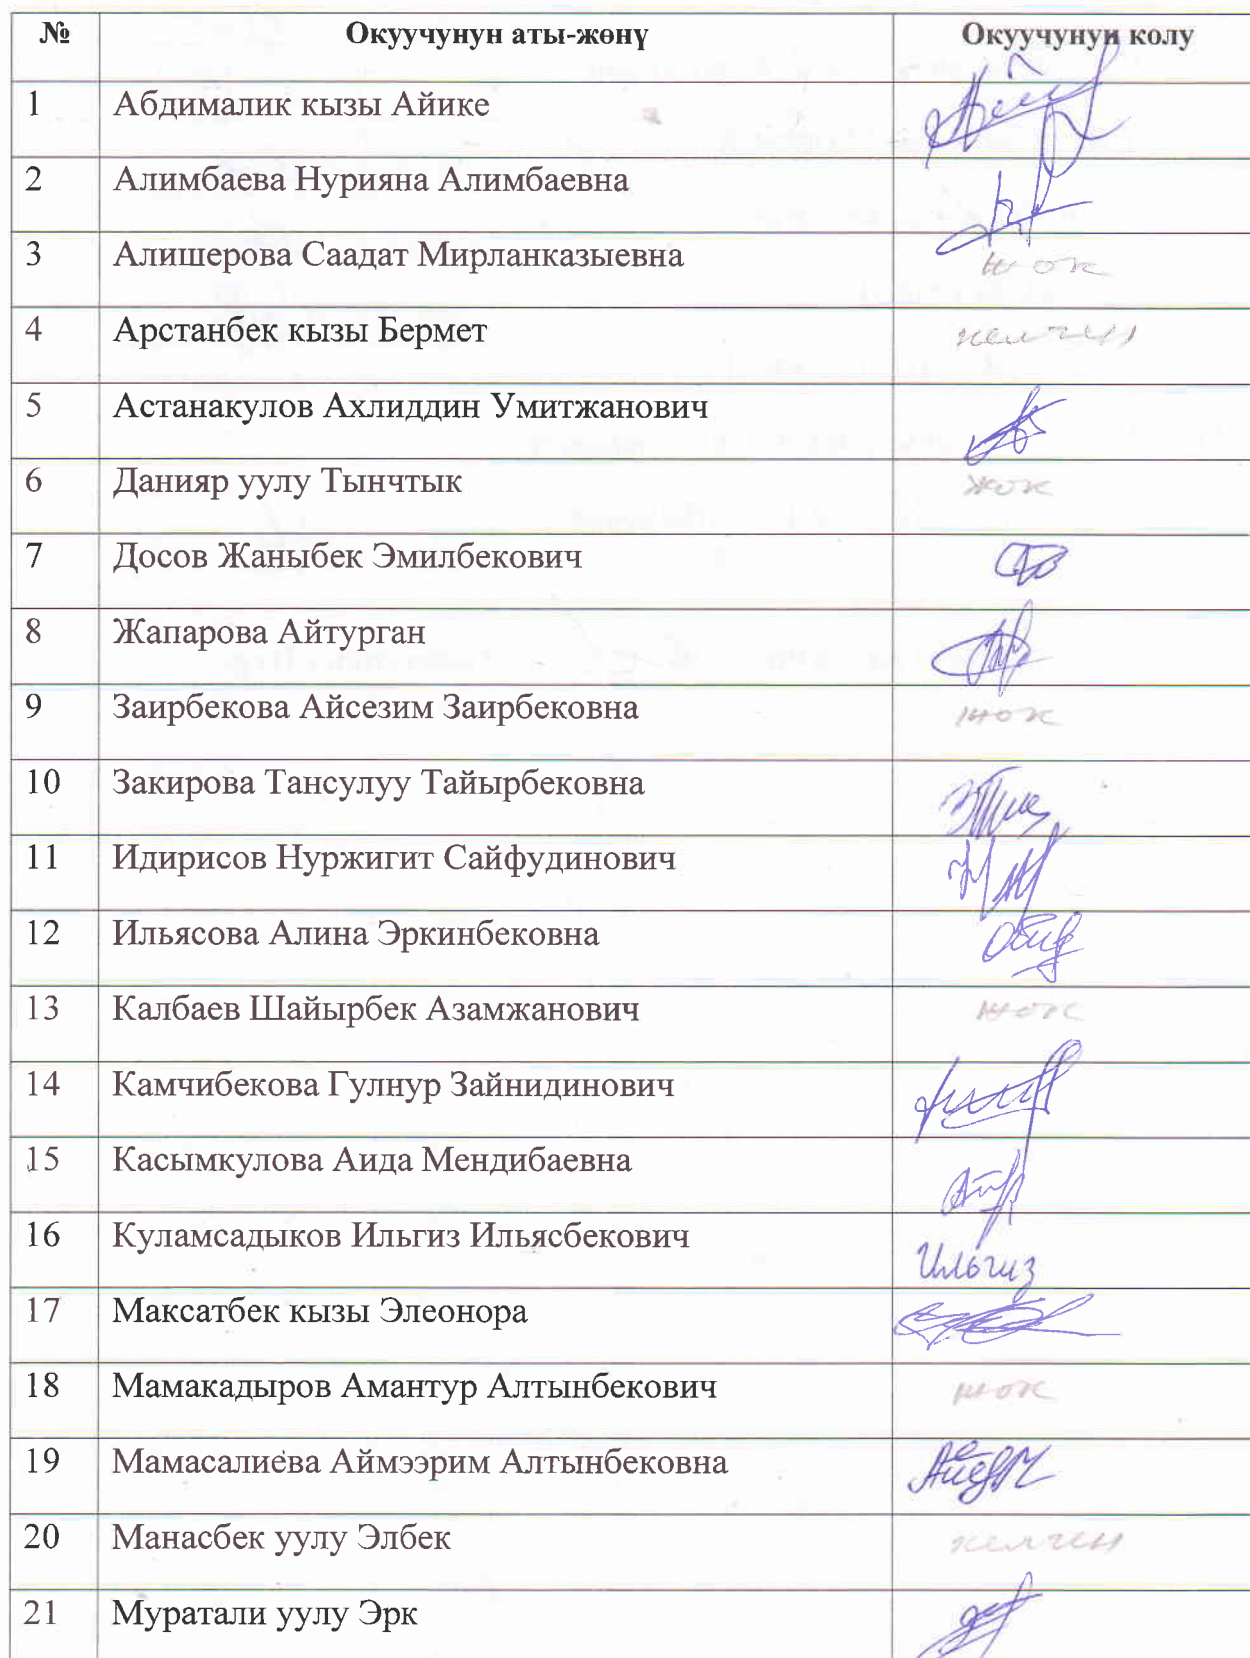 № Окуучунун аты-жөнү Окуучунун колу
1 Абдималик кызы Айике
2 Алимбаева Нурияна Алимбаевна
3 Алишерова Саадат Мирланказыевна жок
4 Арстанбек кызы Бермет келген
5 Астанакулов Ахлиддин Умитжанович
6 Данияр уулу Тынчтык жок
7 Досов Жаныбек Эмилбекович
8 Жапарова Айтурган
9 Заирбекова Айсезим Заирбековна жок
10 Закирова Тансулуу Тайырбековна
11 Идирисов Нуржигит Сайфудинович
12 Ильясова Алина Эркинбековна
13 Калбаев Шайырбек Азамжанович жок
14 Камчибекова Гулнур Зайнидинович
15 Касымкулова Аида Мендибаевна
16 Куламсадыков Ильгиз Ильясбекович Ильгиз
17 Максатбек кызы Элеонора
18 Мамакадыров Амантур Алтынбекович жок
19 Мамасалиева Аймээрим Алтынбековна
20 Манасбек уулу Элбек келген
21 Муратали уулу Эрк